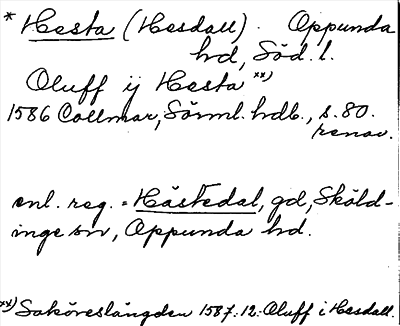 * Hesta (Hesdall). Oppunda
hd, Söd. l.
Oluff ij Hesta xx)
1586 Collmar, Sörml. hdb., s. 80.
renov.
enl. reg. = Hästedal, gd, Sköld-
inge sn, Oppunda hd.
xx) Saköreslängden 1587:12: Oluff i Hesdall.